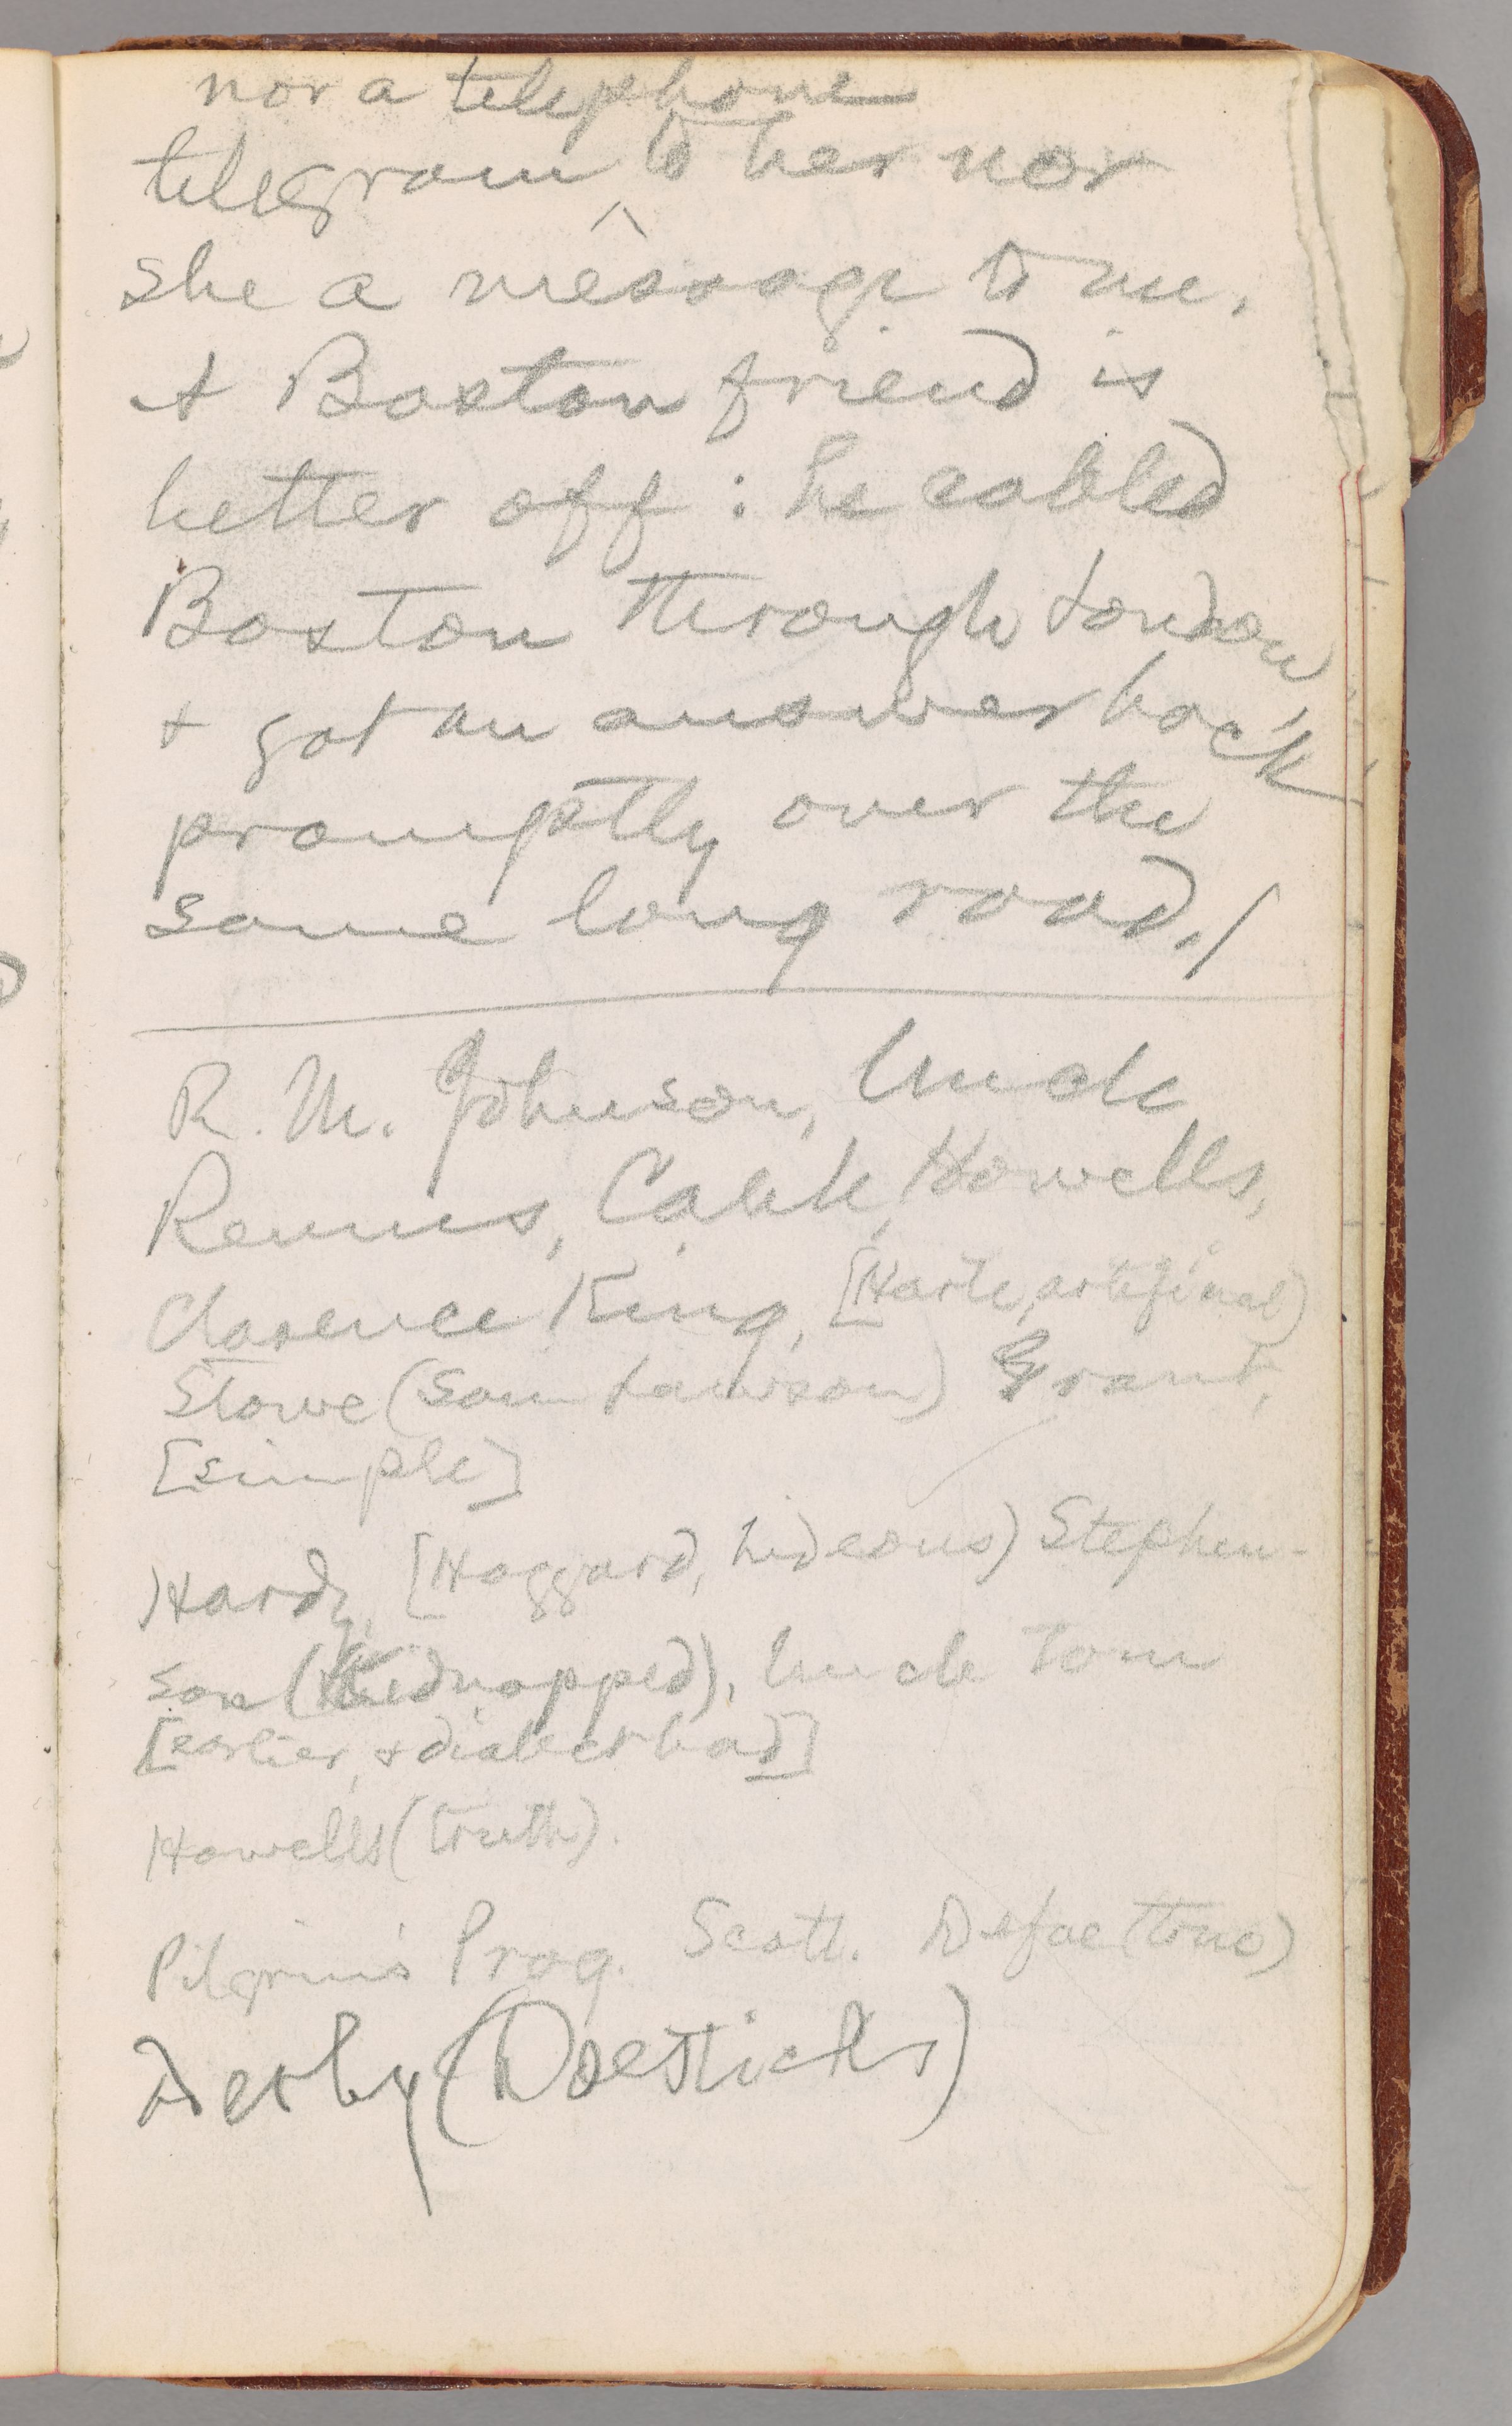 nor a telephone
telegram ^ to her nor
she a message to me.
A Boston friend is
better off: he cabled
Boston through London,
& got an answer back
promptly over the
same long road./
R. M. Johnson, Uncle
Remus, Cable, Howells,
Clarence King, [Harte, artificial)
Stowe (Sam Lawson) Grant,
[simple]
Hardy, [Haggard, hideous) Stephen-
son (Kidnapped), Uncle Tom
[earlier, & dialect bad]
Howells (truth).
Pilgrim's Prog. Scott. Defoe (true)
Derby (Doesticks)